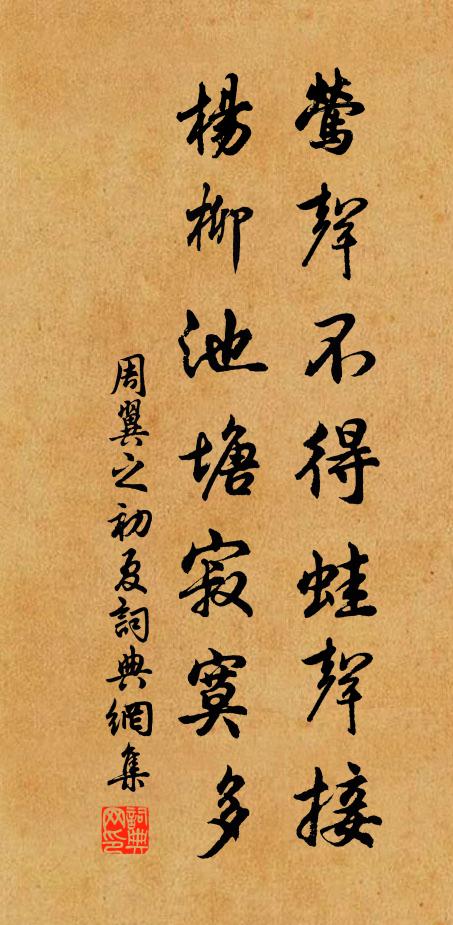 鶯聲不得蛙聲接
楊柳池塘寂寞多
周翼之初夏詞典網集
詞典网印